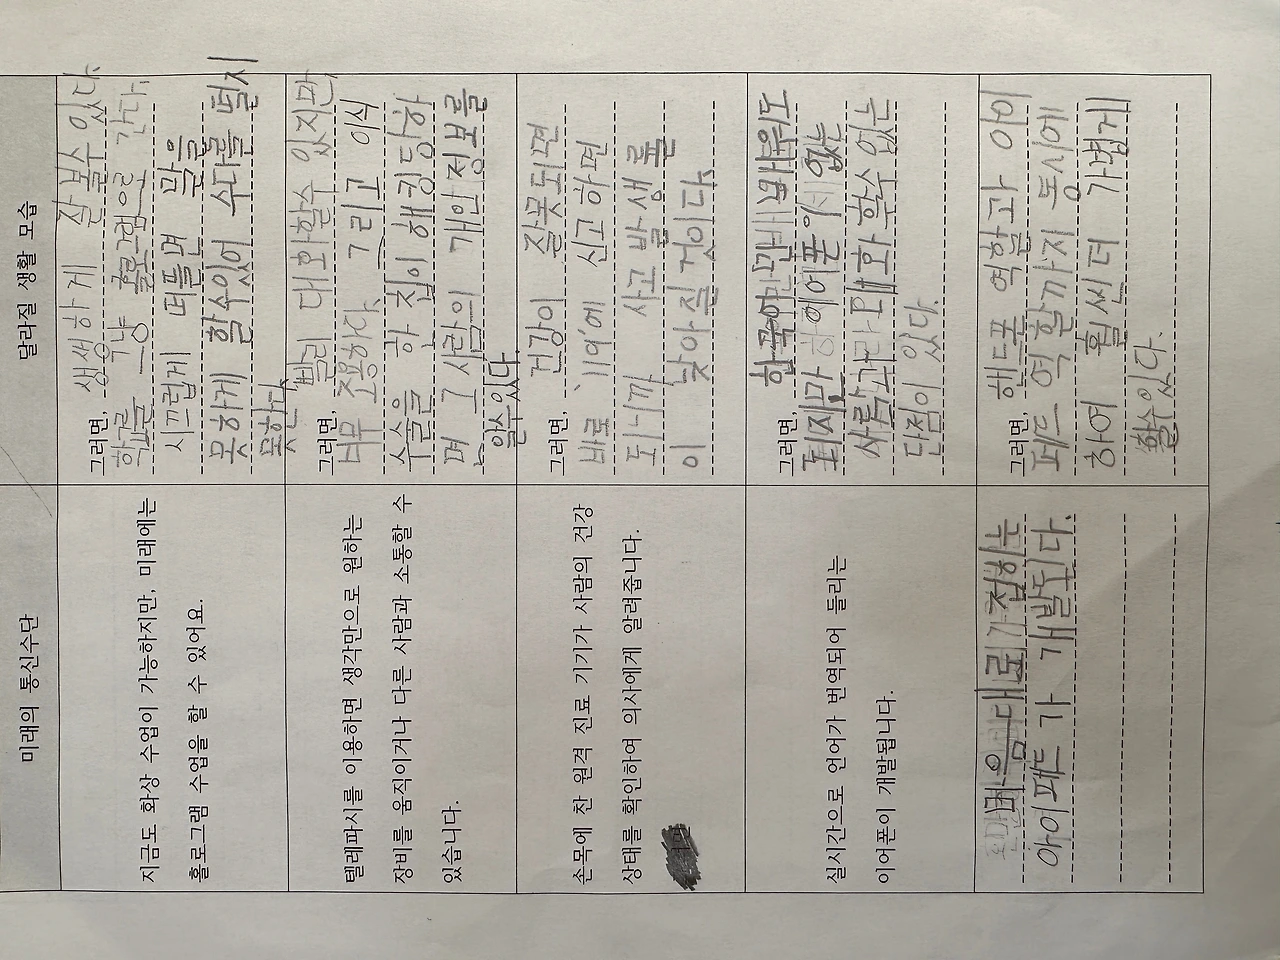 미래의 통신수단
달라질 생활 모습
지금도 화상 수업이 가능하지만, 미래에는
홀로그램 수업을 할 수 있어요.
그러면, 생생하게 잘볼수 있다.
학교는 그냥 홀로그램으로 간다.
시끄럽게 떠들면 말을
못하게 할수있어 수다를 떨지
못한다
텔레파시를 이용하면 생각만으로 원하는
장비를 움직이거나 다른 사람과 소통할 수
있습니다.
그러면, 빨리 대화할수 있지만
너무 조용하다. 그리고 이식
수술을 한 집이 해킹당하
며 그 사람의 개인정보를
알수있다
손목에 찬 원격 진료 기기가 사람의 건강
상태를 확인하여 의사에게 알려줍니다.
그러면, 건강이 잘못되면
바로 '119'에 신고하면
되니까 사고 발생률
이 낮아질 것이다.
실시간으로 언어가 번역되어 들리는
이어폰이 개발됩니다.
그러면,
되지만 이어폰이 없는
사람과 대화할수 없는
단점이 있다.
마음대로 접히는
아이패드가 개발된다.
그러면, 핸드폰 역할과 아이
패드 역할까지 동시에
하여 훨씬더 가볍게
할수있다.